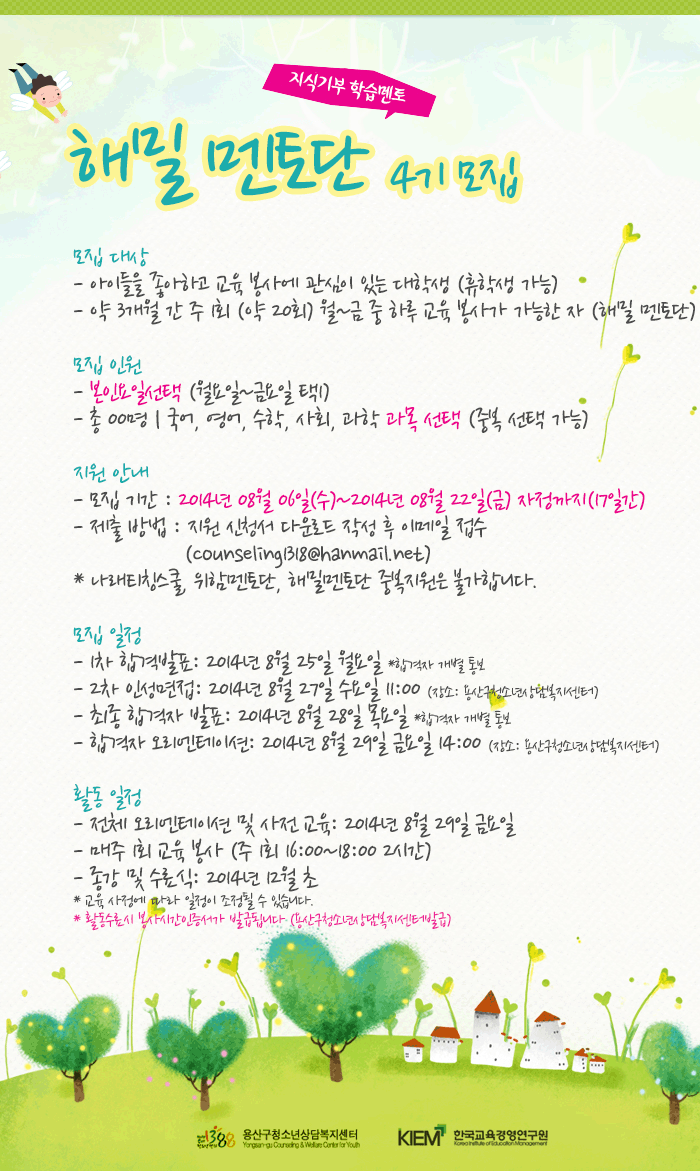 지식기부 학습멘토
해밀 멘토단 4기 모집
모집 대상
- 아이들을 좋아하고 교육 봉사에 관심이 있는 대학생 (휴학생 가능)
- 약 3개월 간 주 1회 (약 20회) 월~금 중 하루 교육 봉사가 가능한 자 (해밀 멘토단)
모집 인원
- 본인요일선택 (월요일~금요일 택1)
- 총 00명 | 국어, 영어, 수학, 사회, 과학 과목 선택 (중복 선택 가능)
지원 안내
- 모집 기간 : 2014년 08월 06일(수)~2014년 08월 22일(금) 자정까지(17일간)
- 제출 방법 : 지원 신청서 다운로드 작성 후 이메일 접수
(counseling1318@hanmail.net)
* 나래티칭스쿨, 위함멘토단, 해밀멘토단 중복지원은 불가합니다.
모집 일정
- 1차 합격발표: 2014년 8월 25일 월요일 *합격자 개별 통보
- 2차 인성면접: 2014년 8월 27일 수요일 11:00 (장소: 용산구청소년상담복지센터)
- 최종 합격자 발표: 2014년 8월 28일 목요일 *합격자 개별 통보
- 합격자 오리엔테이션: 2014년 8월 29일 금요일 14:00 (장소: 용산구청소년상담복지센터)
활동 일정
- 전체 오리엔테이션 및 사전 교육: 2014년 8월 29일 금요일
- 매주 1회 교육 봉사 (주 1회 16:00~18:00 2시간)
- 종강 및 수료식: 2014년 12월 초
* 교육 사정에 따라 일정이 조정될 수 있습니다.
* 활동수료시 봉사시간인증서가 발급됩니다 (용산구청소년상담복지센터발급)
1388 용산구청소년상담복지센터
Yongsan-gu Counseling & Welfare Center for Youth
KIEM 한국교육경영연구원
Korea Institute of Education Management